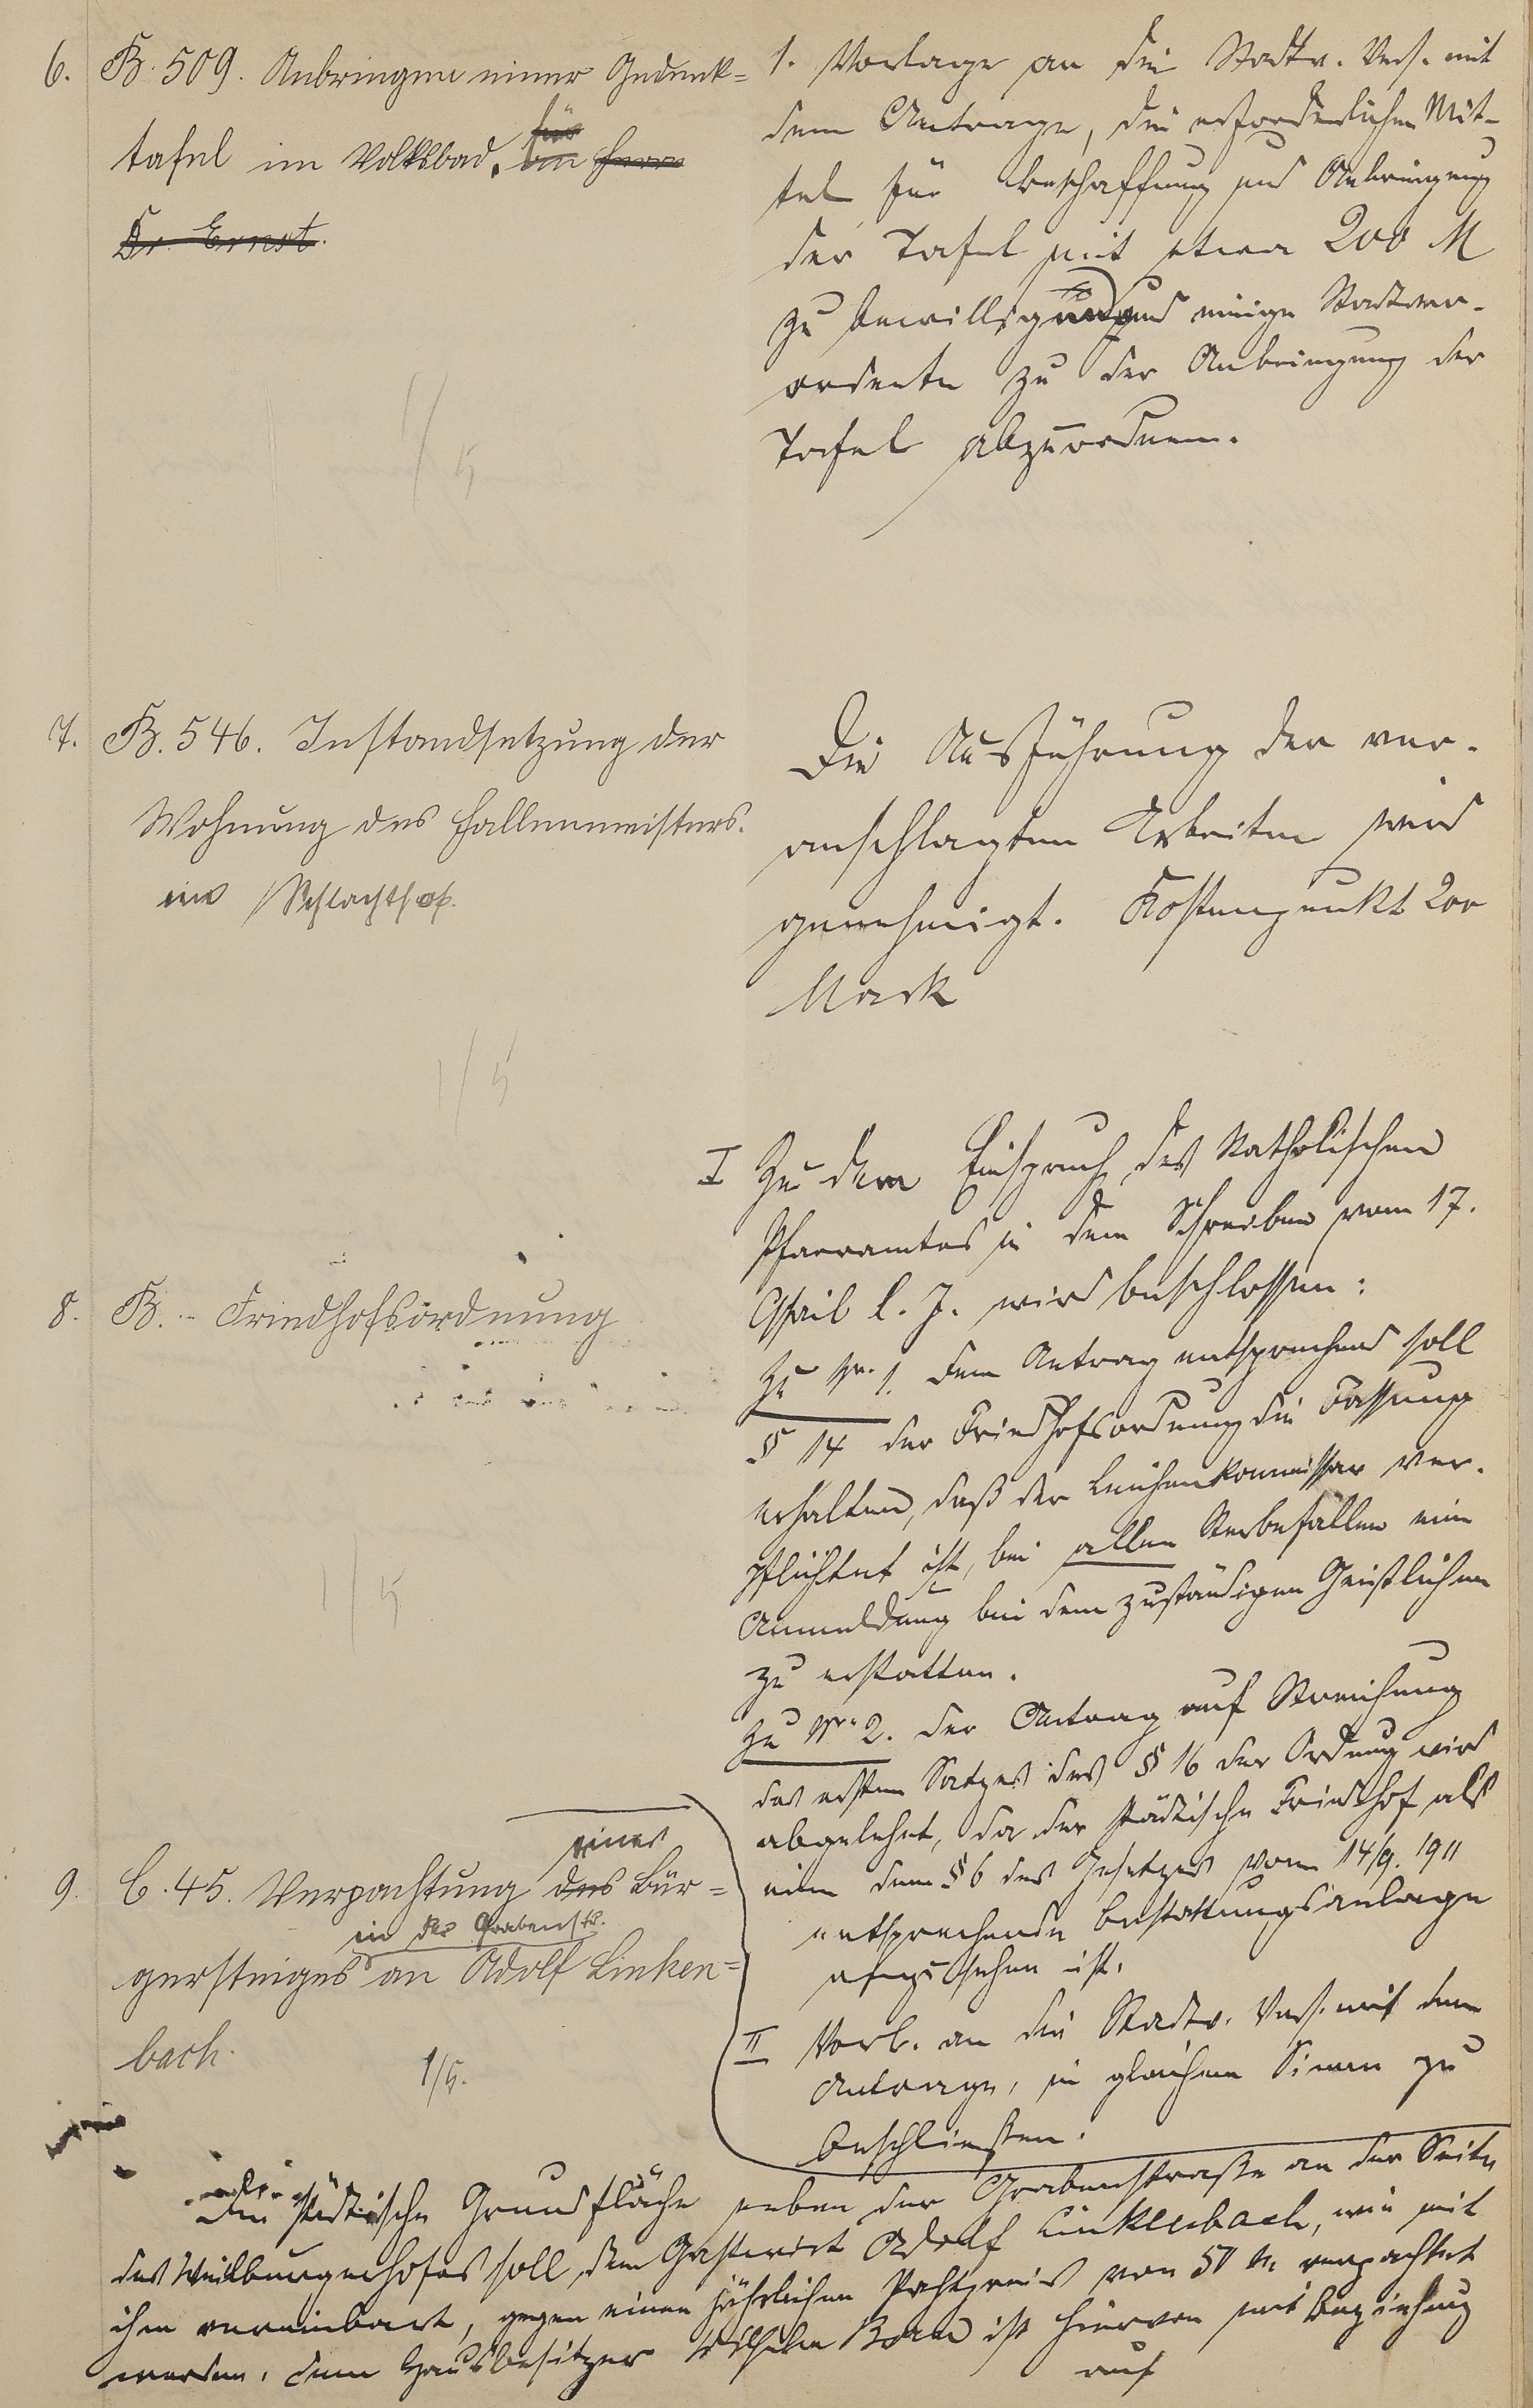 6. B. 509. Anbringen einer Gedenk=
tafel im Volksbad. für
Dr. Ernst.
1. Vorlage an die Stadtv. Vers. mit
dem Antrage, die erforderlichen Mit-
tel für Beschaffung und Anbringung
der Tafel mit etwa 200 M
zu bewilligen und einige Stadtver-
ordnete zu der Anbringung der
Tafel abzuordnen.
1/5
7. B. 546. Instandsetzung der
Wohnung des Hallenmeisters.
im Schlachthof.
Die Ausführung der ver-
anschlagten Arbeiten wird
genehmigt. Kostenpunkt 200
Mark
1/5
8. B. - Friedhofsordnung
1/5
I Zu dem Einspruch des Katholischen
Pfarramtes in dem Schreiben vom 17.
April l. J. wird beschlossen:
Zu Nr. 1. dem Antrag entsprechend soll
§ 14 der Friedhofsordnung die Fassung
erhalten, daß der Leichenkommissar ver-
pflichtet ist, bei allen Sterbefällen eine
Anmeldung bei dem zuständigen Geistlichen
zu erstatten.
Zu Nr. 2. der Antrag auf Streichung
des ersten Satzes des § 16 der Ordnung wird
abgelehnt, da der städtische Friedhof als
eine dem § 6 des Gesetzes vom 14/9. 1911
entsprechende Bestattungsanlage
anzusehen ist.
II Vorl. an die Stadtv. Vers. mit dem
Antrage, in gleichem Sinne zu
beschließen.
9. C. 45. Verpachtung des eines Bür=
gersteiges in der Grabenstr. an Adolf Linken=
bach.
1/5.
Die städtische Grundfläche neben der Grabenstraße an der Seite
des Weilburgerhofes soll dem Gastwirt Adolf Linkenbach, wie mit
ihm vereinbart, gegen einen jährlichen Pachtpreis von 50 M verpachtet
werden. Dem Hausbesitzer Wilhelm Born ist hiervon mit Beziehung
auf